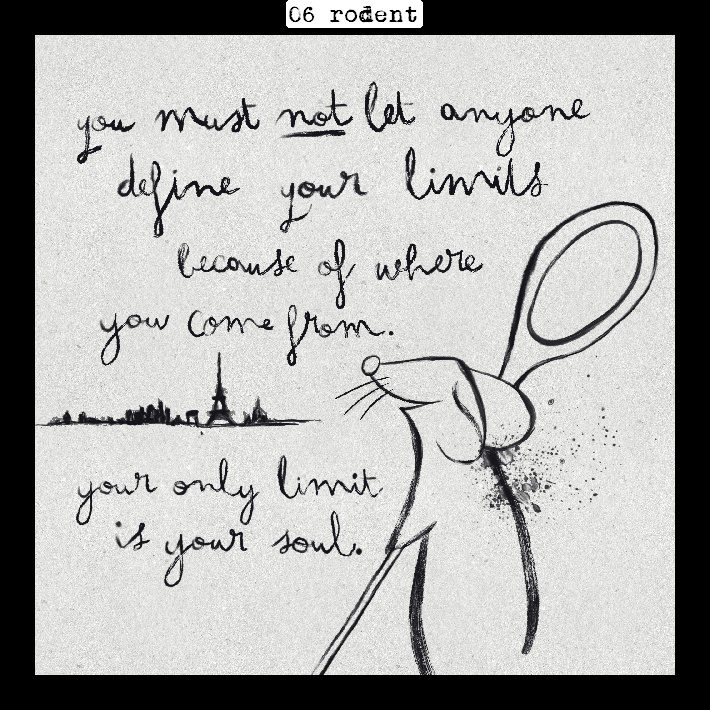 06 rodent
you must not let anyone
define your limits
because of where
you come from.
your only limit
is your soul.